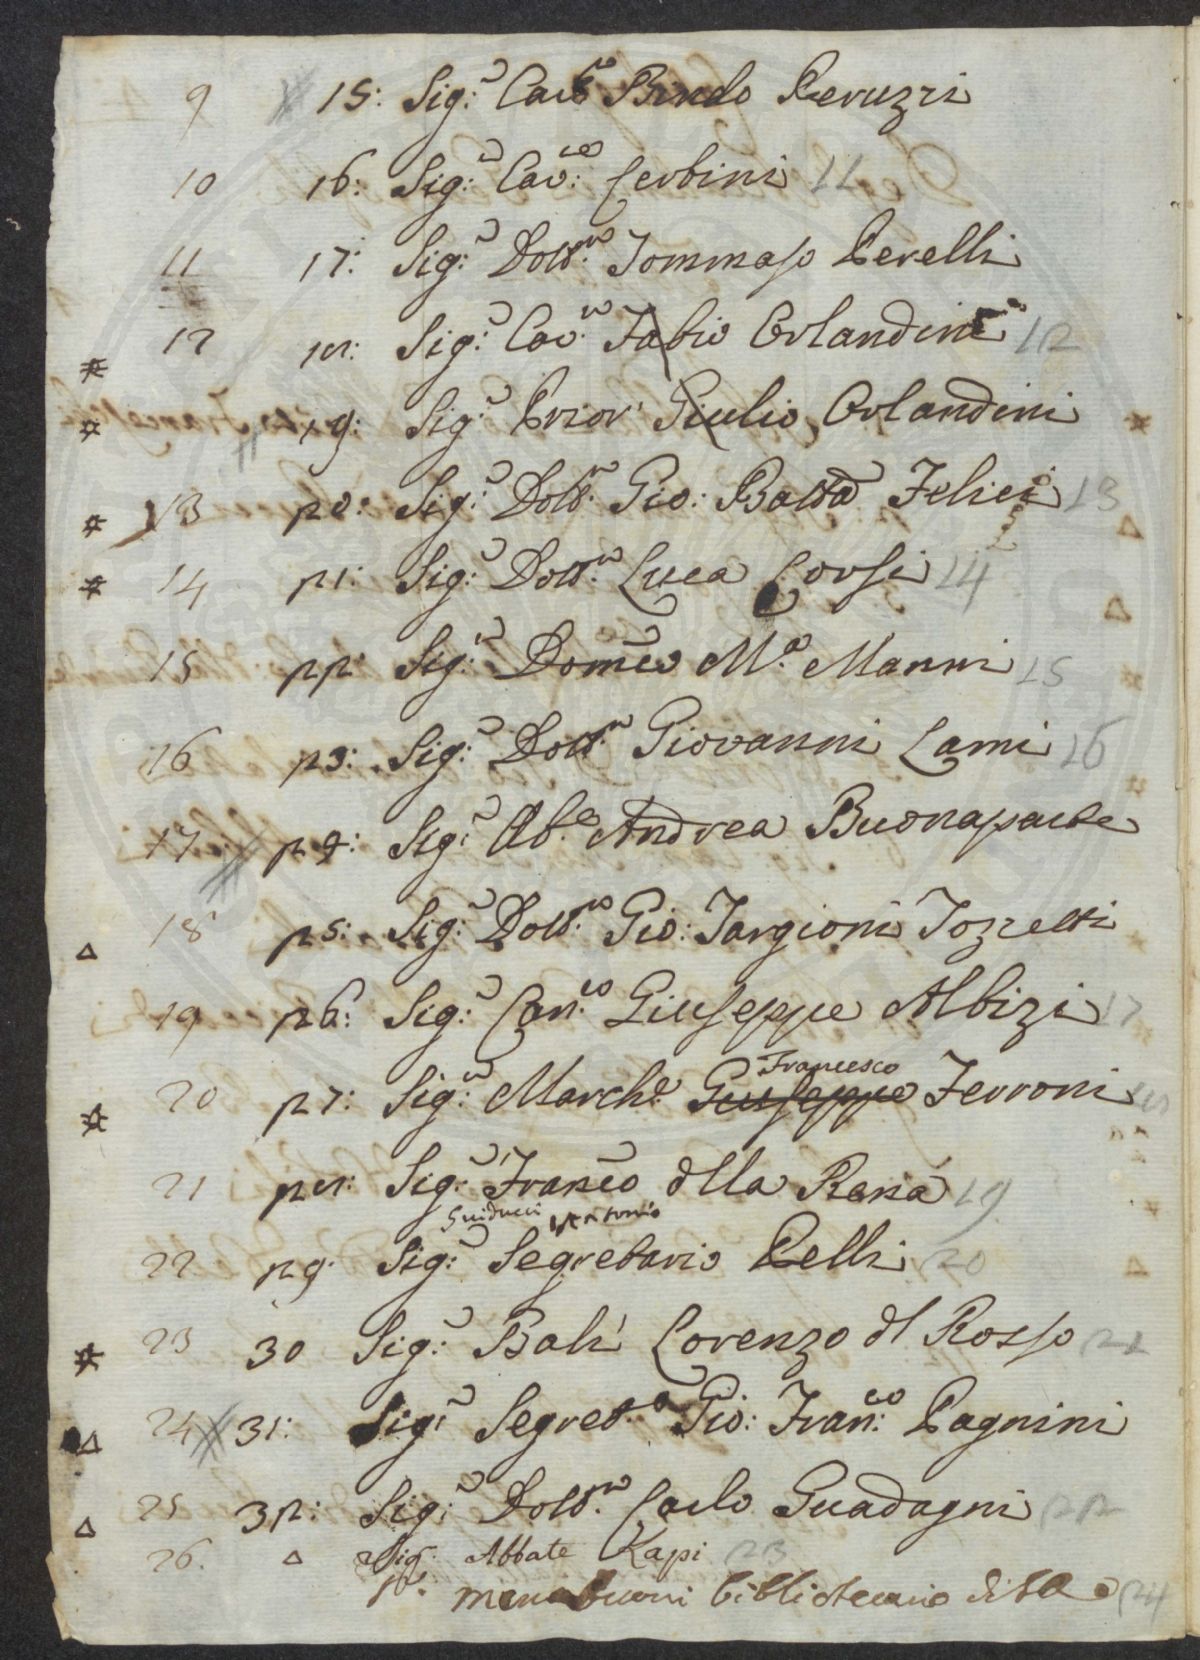 9 15: Sig:r Cav:re Bindo Peruzzi
10 16: Sig:r Cav:re Cerbini 11
11 17: Sig:r Dott:re Tommaso Perelli
12 18: Sig:r Cav:re Fabio Orlandini 12
19: Sig:r Prior Giulio Orlandini
13 20: Sig:r Dott:re Gio: Batta Felici 13
14 21: Sig:r Dott:re Luca Corsi 14
15 22: Sig:r Domco M.a Manni 15
16 23: Sig:r Dott:re Giovanni Lami 16
17 24: Sig:r Ab.e Andrea Buonaparte
18 25: Sig:r Dott:re Gio: Targioni Tozzetti
19 26: Sig:r Can:co Giuseppe Albizi 17
Francesco
20 27: Sig:r March.e Giuseppe Ferroni 18
21 28: Sig:r Franco della Rena 19
Guiducci Antonio
22 29: Sig:r Segretario Pelli 20
23 30 Sig:r Balì Lorenzo del Rosso 21
24 31: Sig:r Segret.o Gio: Fran:co Pagnini
25 32: Sig:r Dott:re Carlo Guadagni 22
26. Sig:r Abbate Kapi 23
Menabuoni bibliotecario di 24